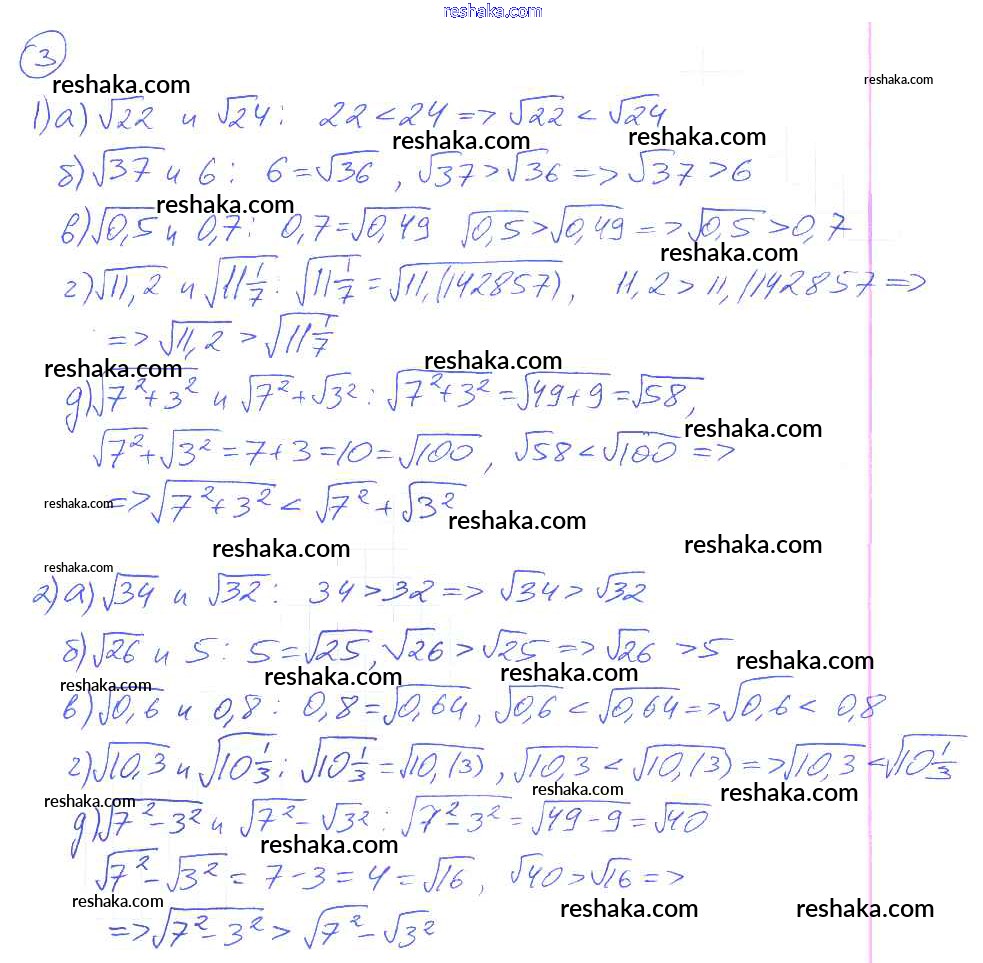 reshaka.com
3
reshaka.com reshaka.com
1) а) √22 и √24 : 22 < 24 => √22 < √24
reshaka.com reshaka.com
б) √37 и 6 : 6 = √36 , √37 > √36 => √37 > 6
reshaka.com
в) √0,5 и 0,7 : 0,7 = √0,49 √0,5 > √0,49 => √0,5 > 0,7
reshaka.com
г) √11,2 и √11 1/7 : √11 1/7 = √11,(142857) , 11,2 > 11,(142857 =>
=> √11,2 > √11 1/7
reshaka.com reshaka.com
д) √7²+3² и √7² + √3² : √7²+3² = √49+9 = √58,
reshaka.com
√7² + √3² = 7 + 3 = 10 = √100 , √58 < √100 =>
reshaka.com => √7²+3² < √7² + √3²
reshaka.com
reshaka.com reshaka.com
reshaka.com
2) а) √34 и √32 : 34 > 32 => √34 > √32
б) √26 и 5 : 5 = √25, √26 > √25 => √26 > 5
reshaka.com reshaka.com reshaka.com reshaka.com
в) √0,6 и 0,8 : 0,8 = √0,64 , √0,6 < √0,64 => √0,6 < 0,8
г) √10,3 и √10 1/3 ; √10 1/3 = √10,(3) , √10,3 < √10,(3) => √10,3 < √10 1/3
reshaka.com reshaka.com reshaka.com
д) √7²-3² и √7² - √3² : √7²-3² = √49-9 = √40
reshaka.com
√7² - √3² = 7 - 3 = 4 = √16 , √40 > √16 =>
reshaka.com reshaka.com reshaka.com
=> √7²-3² > √7² - √3²